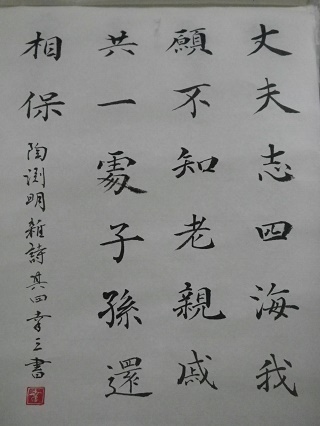 丈夫志四海我
願不知老親戚
共一處子孫還
相保
陶淵明雜詩其四幸三書